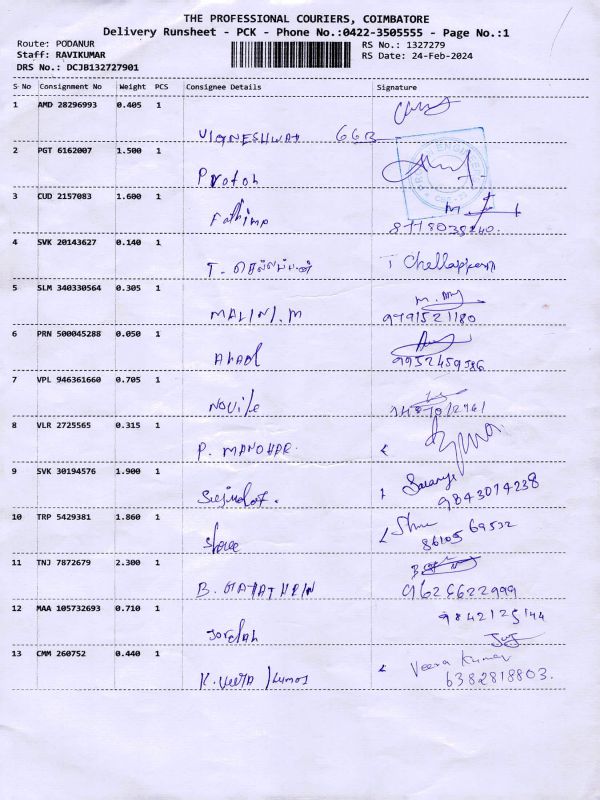 THE PROFESSIONAL COURIERS, COIMBATORE
Delivery Runsheet - PCK - Phone No.:0422-3505555 - Page No.:1
Route: PODANUR
RS No.: 1327279
Staff: RAVIKUMAR
RS Date: 24-Feb-2024
DRS No.: DCJB132727901
S No Consignment No Weight PCS Consignee Details Signature
1 AMD 28296993 0.405 1
VIGNESHWAR GGB
2 PGT 6162007 1.500 1
3 CUD 2157083 1.600 1
Fathima
4 SVK 20143627 0.140 1
T. செல்லப்பன் T Chellappan
5 SLM 340330564 0.305 1
MALINI.M 9791521180
6 PRN 500045288 0.050 1
9952459386
7 VPL 946361660 0.705 1
8 VLR 2725565 0.315 1
P. MANOHAR.
9 SVK 30194576 1.900 1
Saranya
9843074238
10 TRP 5429381 1.860 1
Shree
86105 69532
11 TNJ 7872679 2.300 1
9626622999
12 MAA 105732693 0.710 1
Jordah 9842125144
13 CMM 260752 0.440 1
K. Veera Kumar Veera Kumar
6382818803.